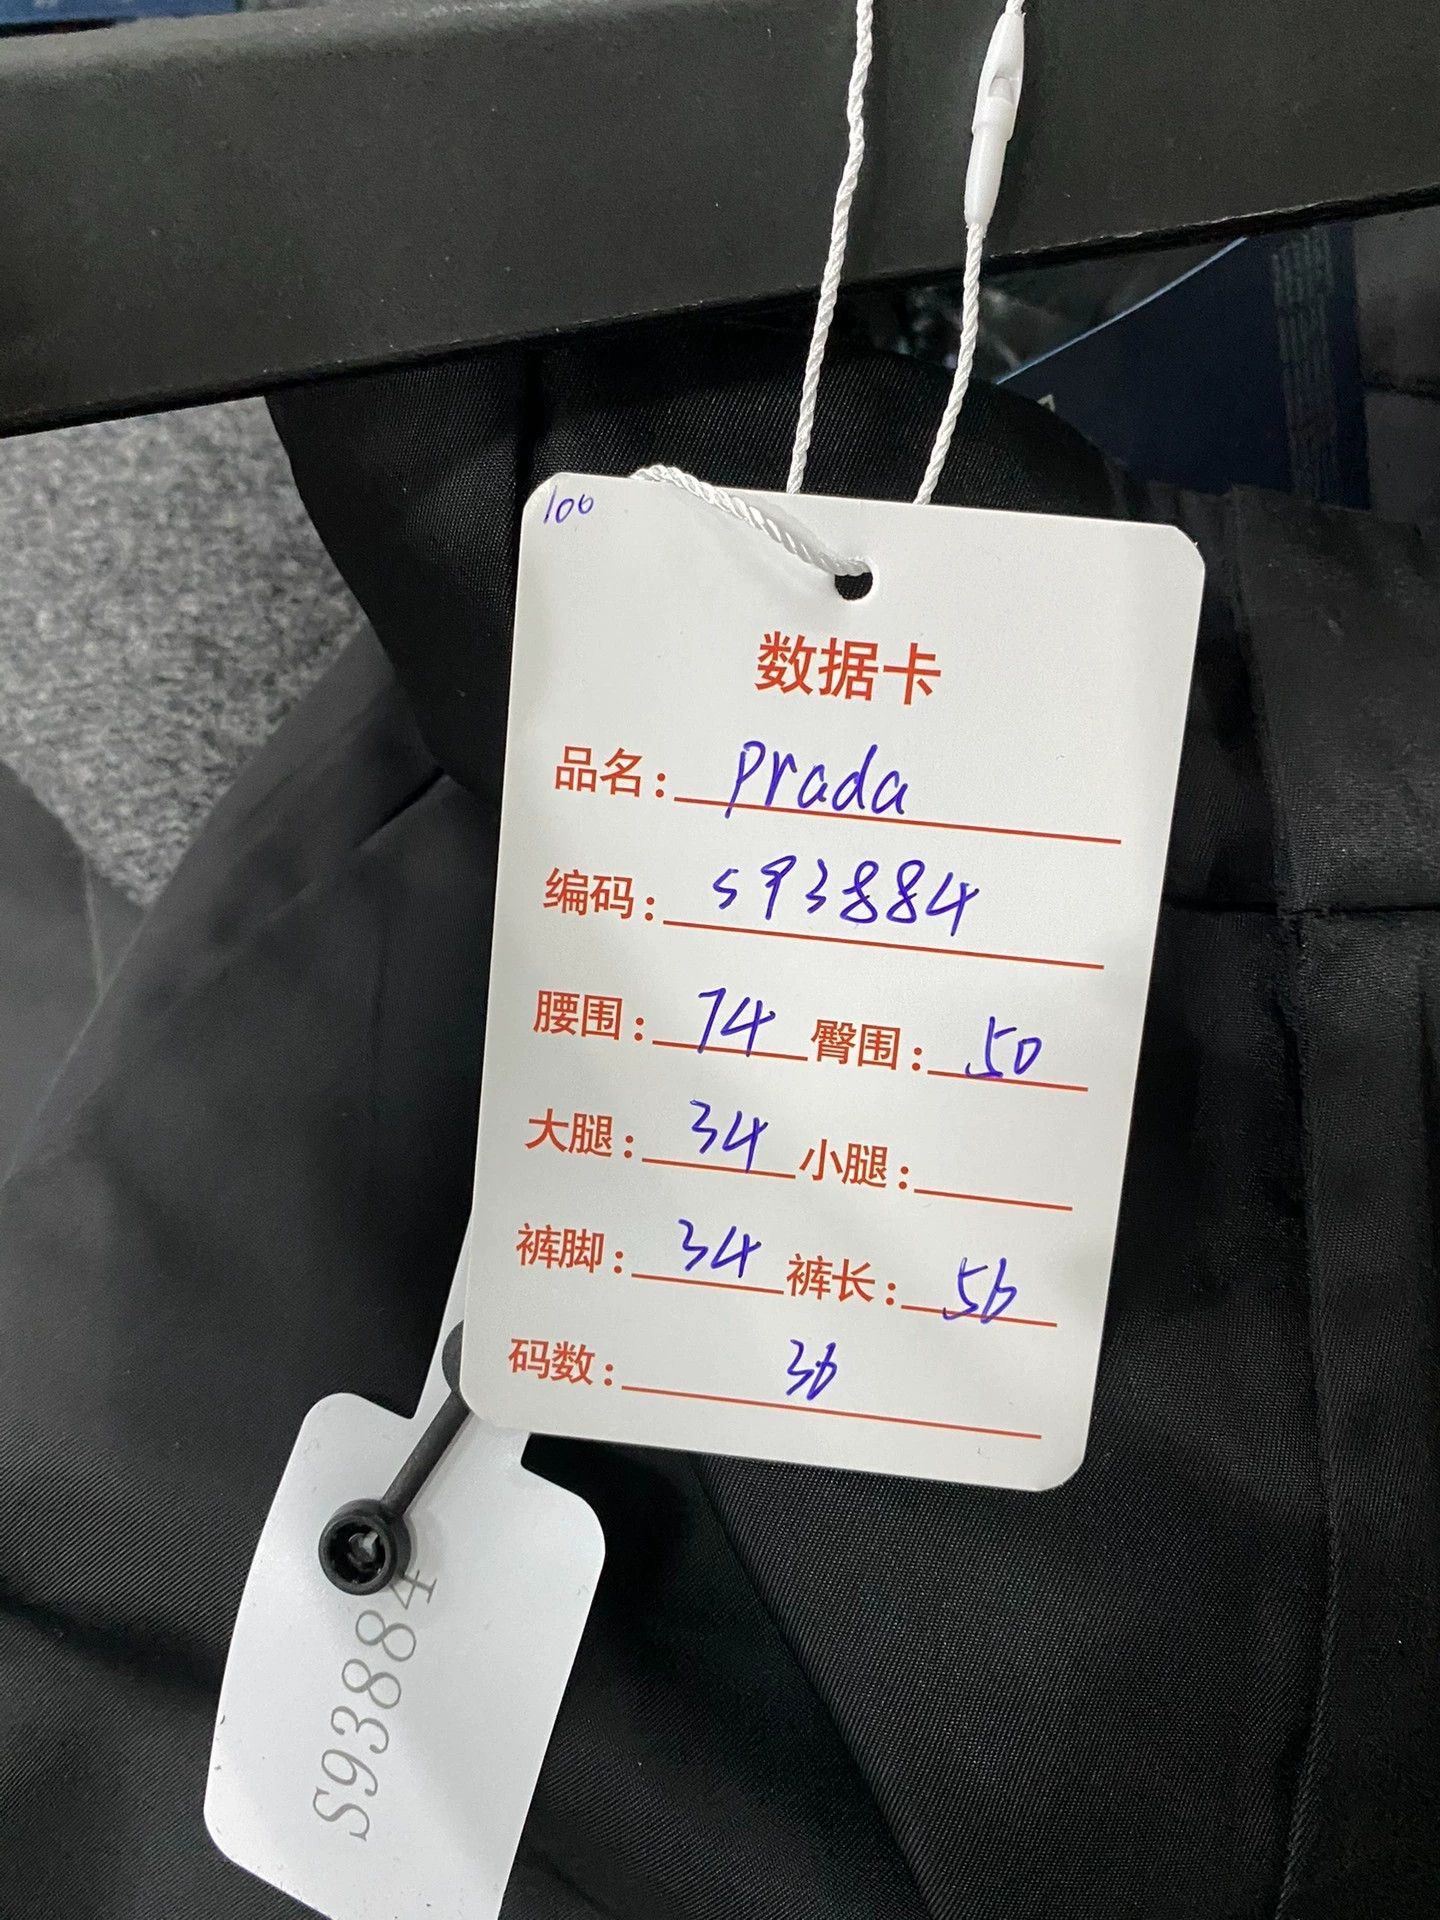 100
数据卡
品名: Prada
编码: S93884
腰围: 74 臀围: 50
大腿: 34 小腿:
裤脚: 34 裤长: 56
码数: 36
S93884